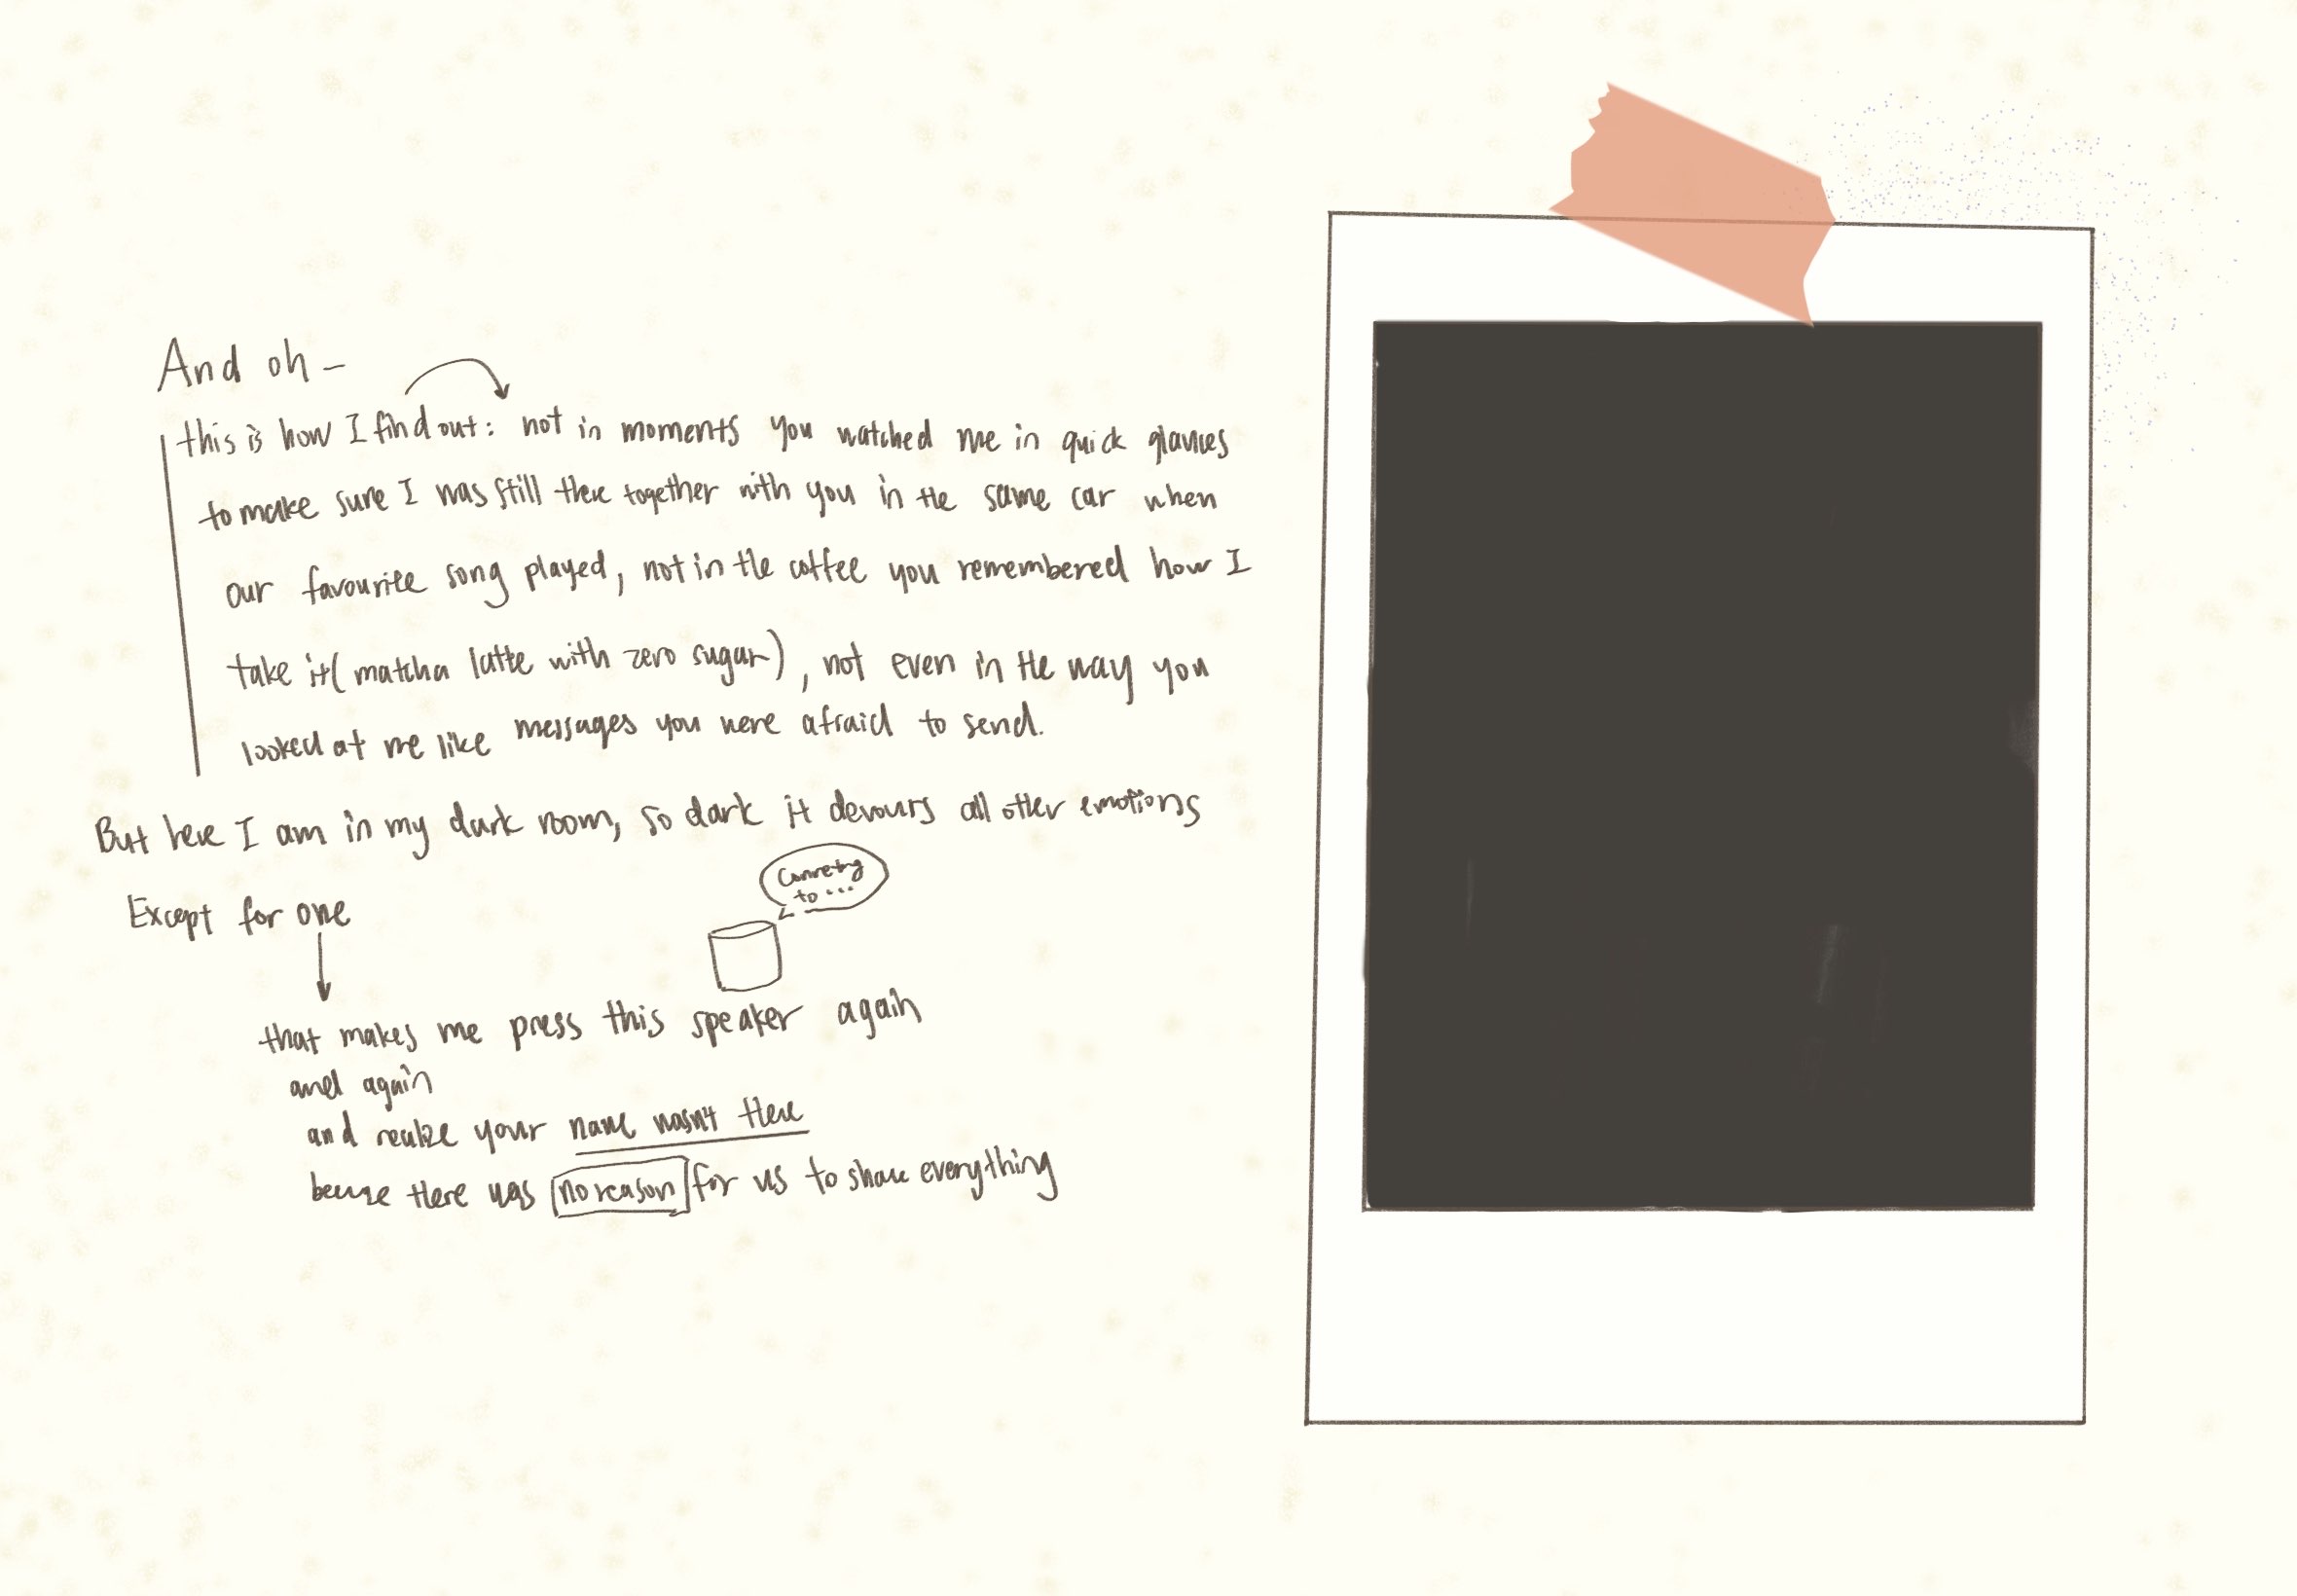 And oh –
this is how I find out: not in moments you watched me in quick glances
to make sure I was still there together with you in the same car when
our favourite song played, not in the coffee you remembered how I
take it (matcha latte with zero sugar), not even in the way you
looked at me like messages you were afraid to send.
But here I am in my dark room, so dark it devours all other emotions
Except for one
to...
that makes me press this speaker again
and again
and realize your name wasn't there
because there was no reason for us to share everything